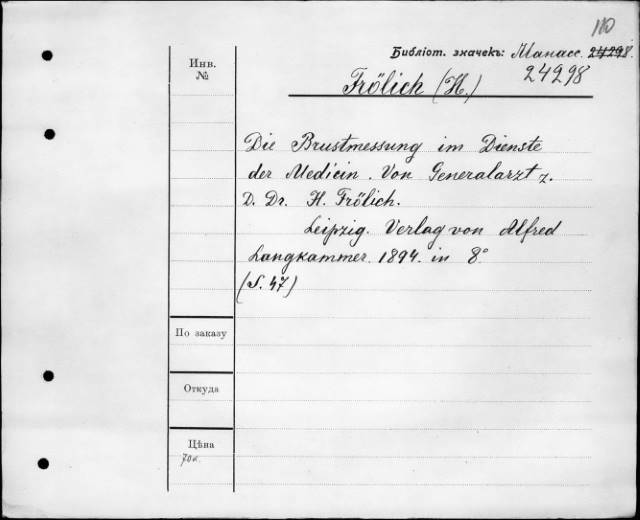 110
Библіот. значекъ: Манасс. 24298.
24298
Инв.
№
Frölich (H.)
Die Brustmessung im Dienste
der Medicin. Von Generalarzt z.
D. Dr. H. Frölich.
Leipzig. Verlag von Alfred
Langkammer. 1894. in 8°
(S. 47)
По заказу
Откуда
Цѣна
70к.